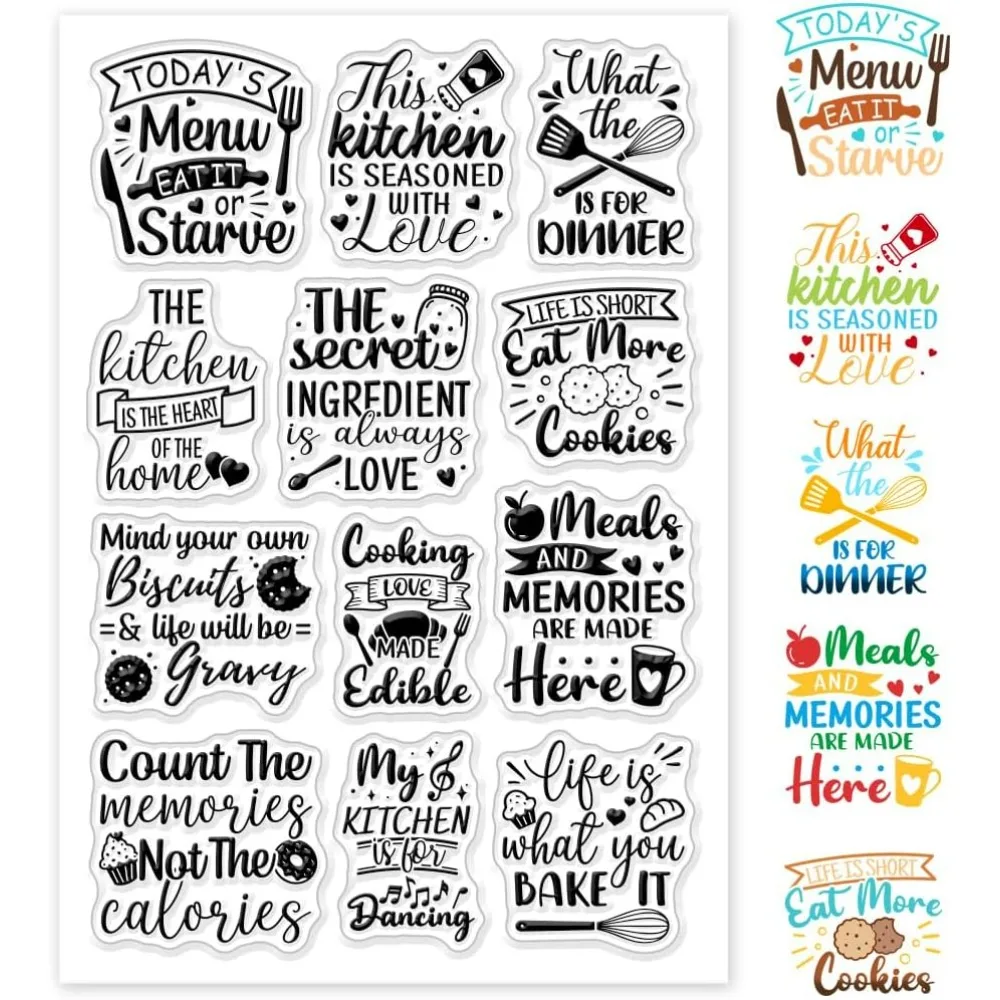 TODAY'S
Menu
EAT IT
or
Starve
This
kitchen
IS SEASONED
WITH
Love
What
the
IS FOR
DINNER
THE
kitchen
IS THE HEART
OF THE
home
THE
secret
INGREDIENT
is always
LOVE
LIFE IS SHORT
Eat More
Cookies
Mind your own
Biscuits
& life will be
Gravy
Cooking
LOVE
MADE
Edible
Meals
AND
MEMORIES
ARE MADE
Here
Count The
memories
Not The
calories
My
KITCHEN
is for
Dancing
life is
what you
BAKE IT
TODAY'S
Menu
EAT IT
or
Starve
This
kitchen
IS SEASONED
WITH
Love
What
the
IS FOR
DINNER
Meals
AND
MEMORIES
ARE MADE
Here
LIFE IS SHORT
Eat More
Cookies